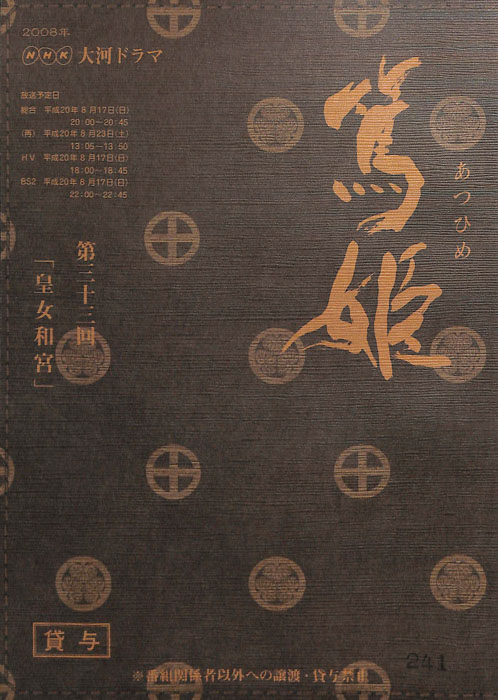 2008年
NHK 大河ドラマ
放送予定日
総合 平成20年8月17日(日)
20:00~20:45
(再) 平成20年8月23日(土)
13:05~13:50
HV 平成20年8月17日(日)
18:00~18:45
BS2 平成20年8月17日(日)
22:00~22:45
篤姫
あつひめ
第三十三回
「皇女和宮」
貸与
※番組関係者以外への譲渡・貸与禁止
241